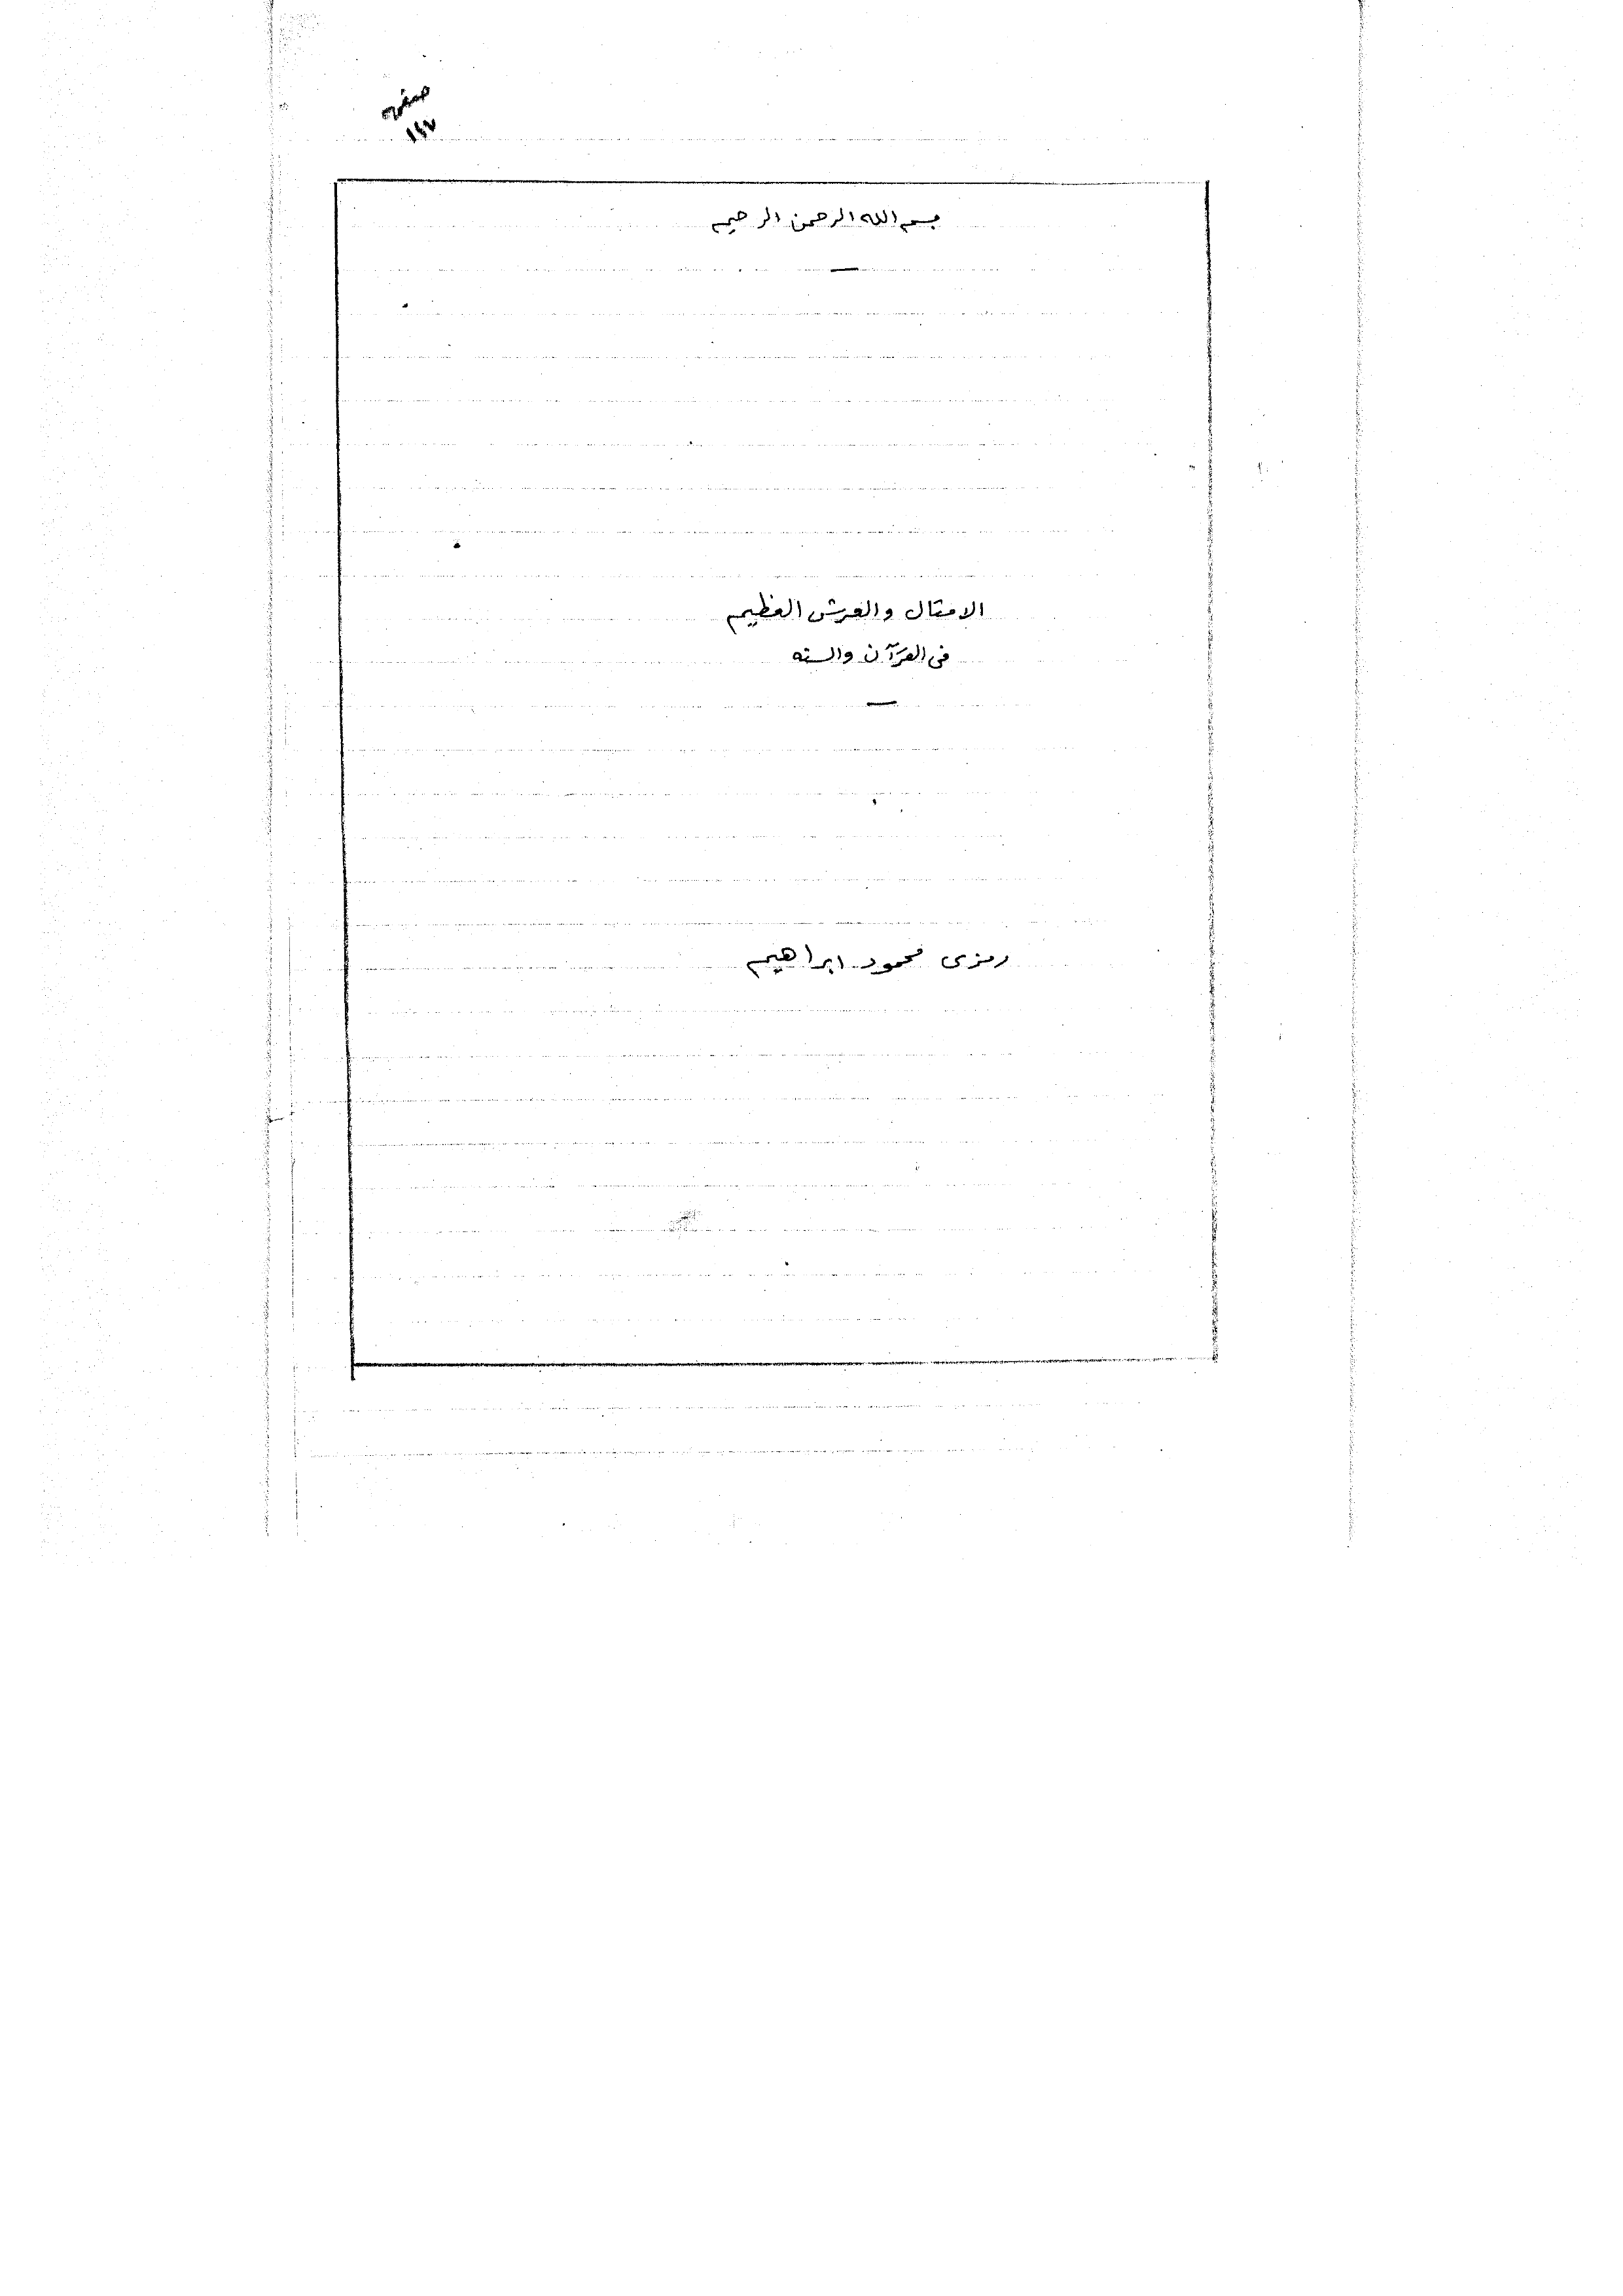 صفحه
١٤٧
بسم الله الرحمن الرحيم
الامثال والعرش العظيم
فى القرآن والسنه
رمزى محمود ابراهيم